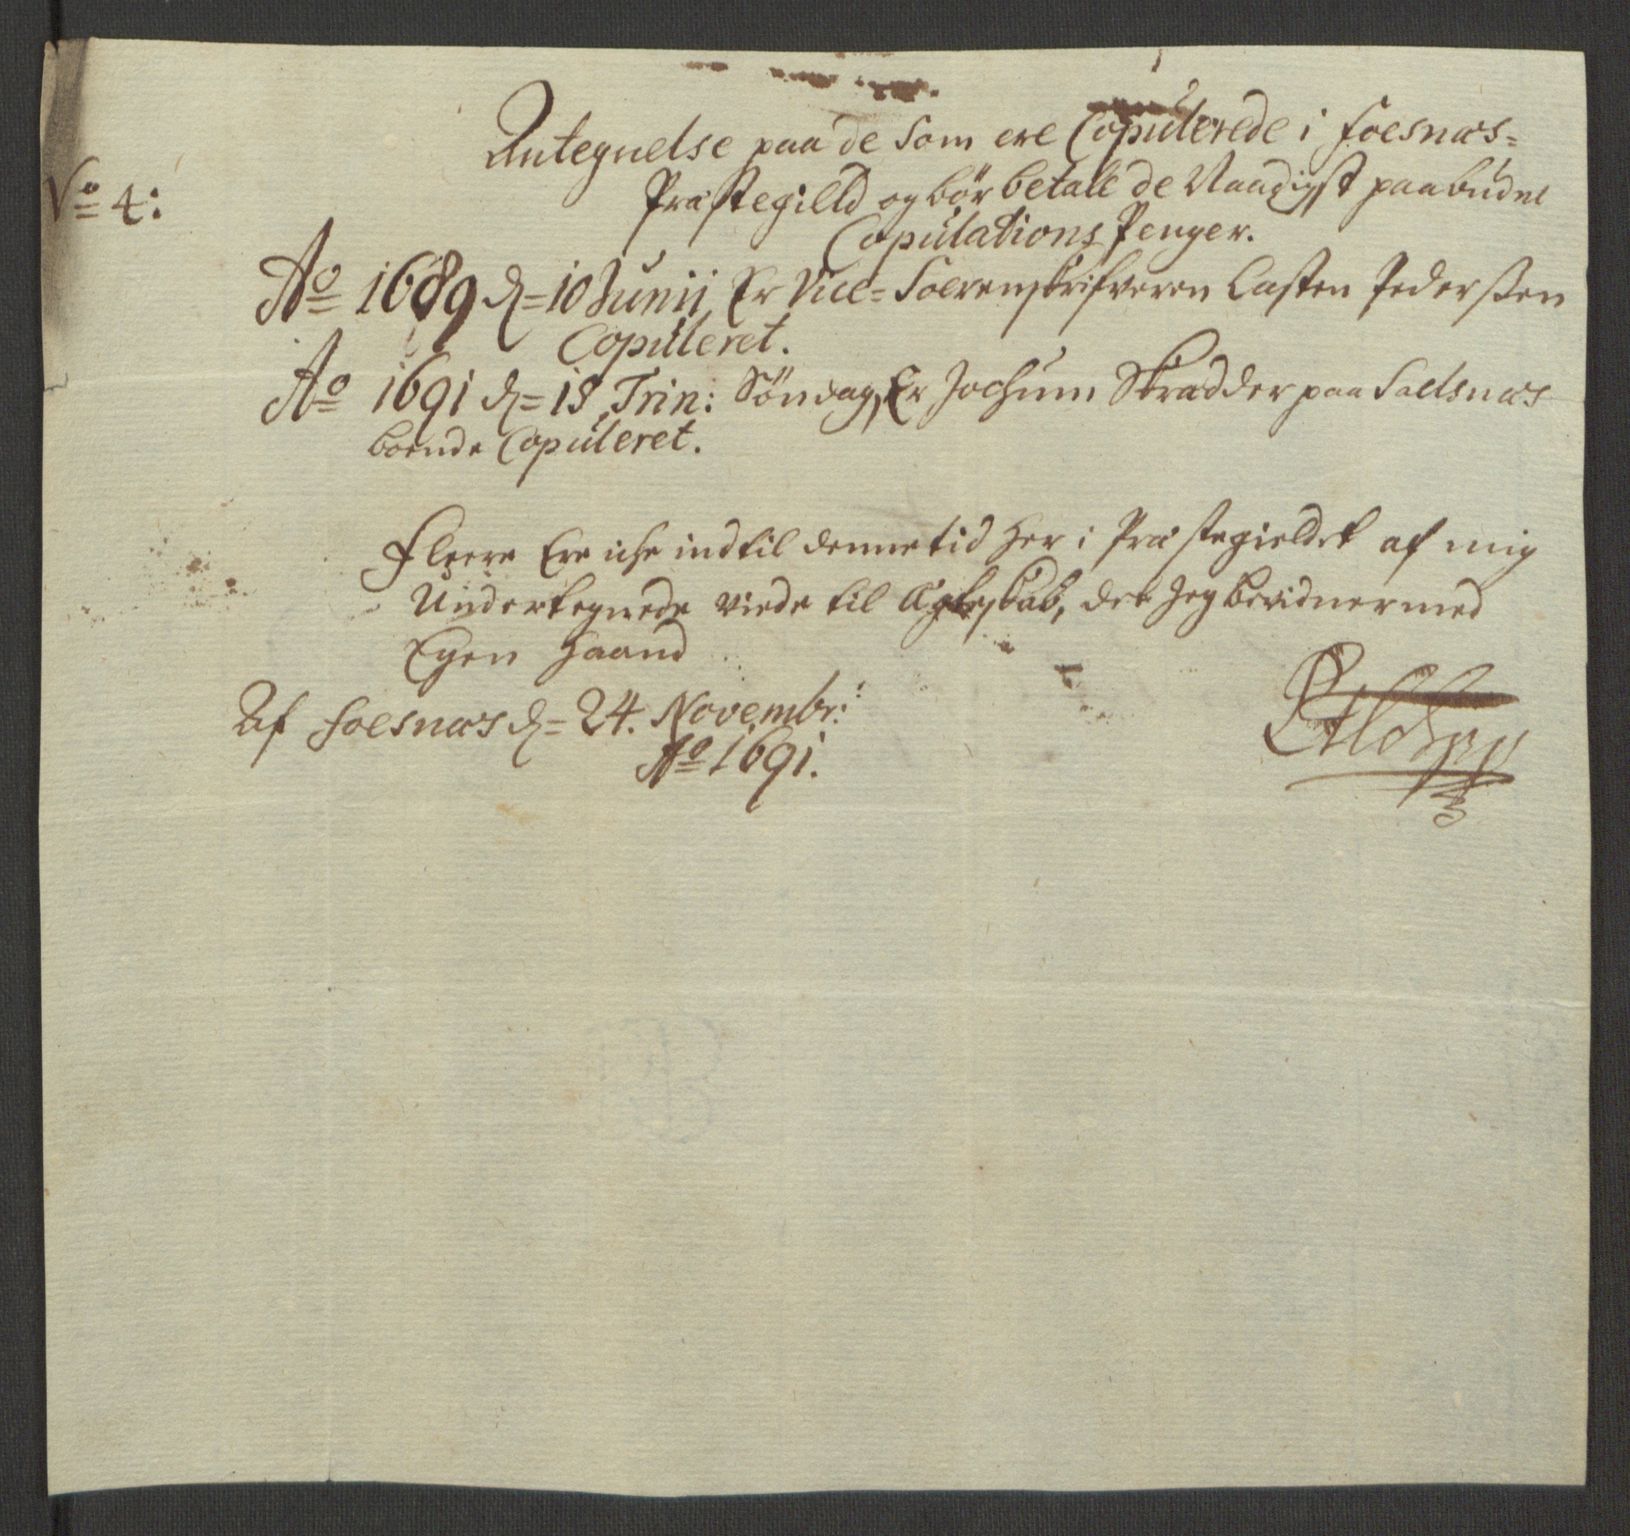 Antegnelse paa de som ere Copulerede i Foesnæs=
No 4:
Præstegield og bør betale de Naadigst paabudne
Copulations Penger.
Ao 1689 d= 10 Junii, Er Vice= Soerenskrifveren Casten Pederssen
Copuleret.
Ao 1691 d= 18 Trin: Söndag, Er Jochum Skrædder paa Saelsnæs
boende Copuleret.
Fleere Ere iche indtil denne tid her i Præstegieldet af mig
Undertegnede viede til Ægteskab, det Jeg bevidner med
Egen Haand
Af Foesnæs d= 24. Novembr:
Ao 1691.